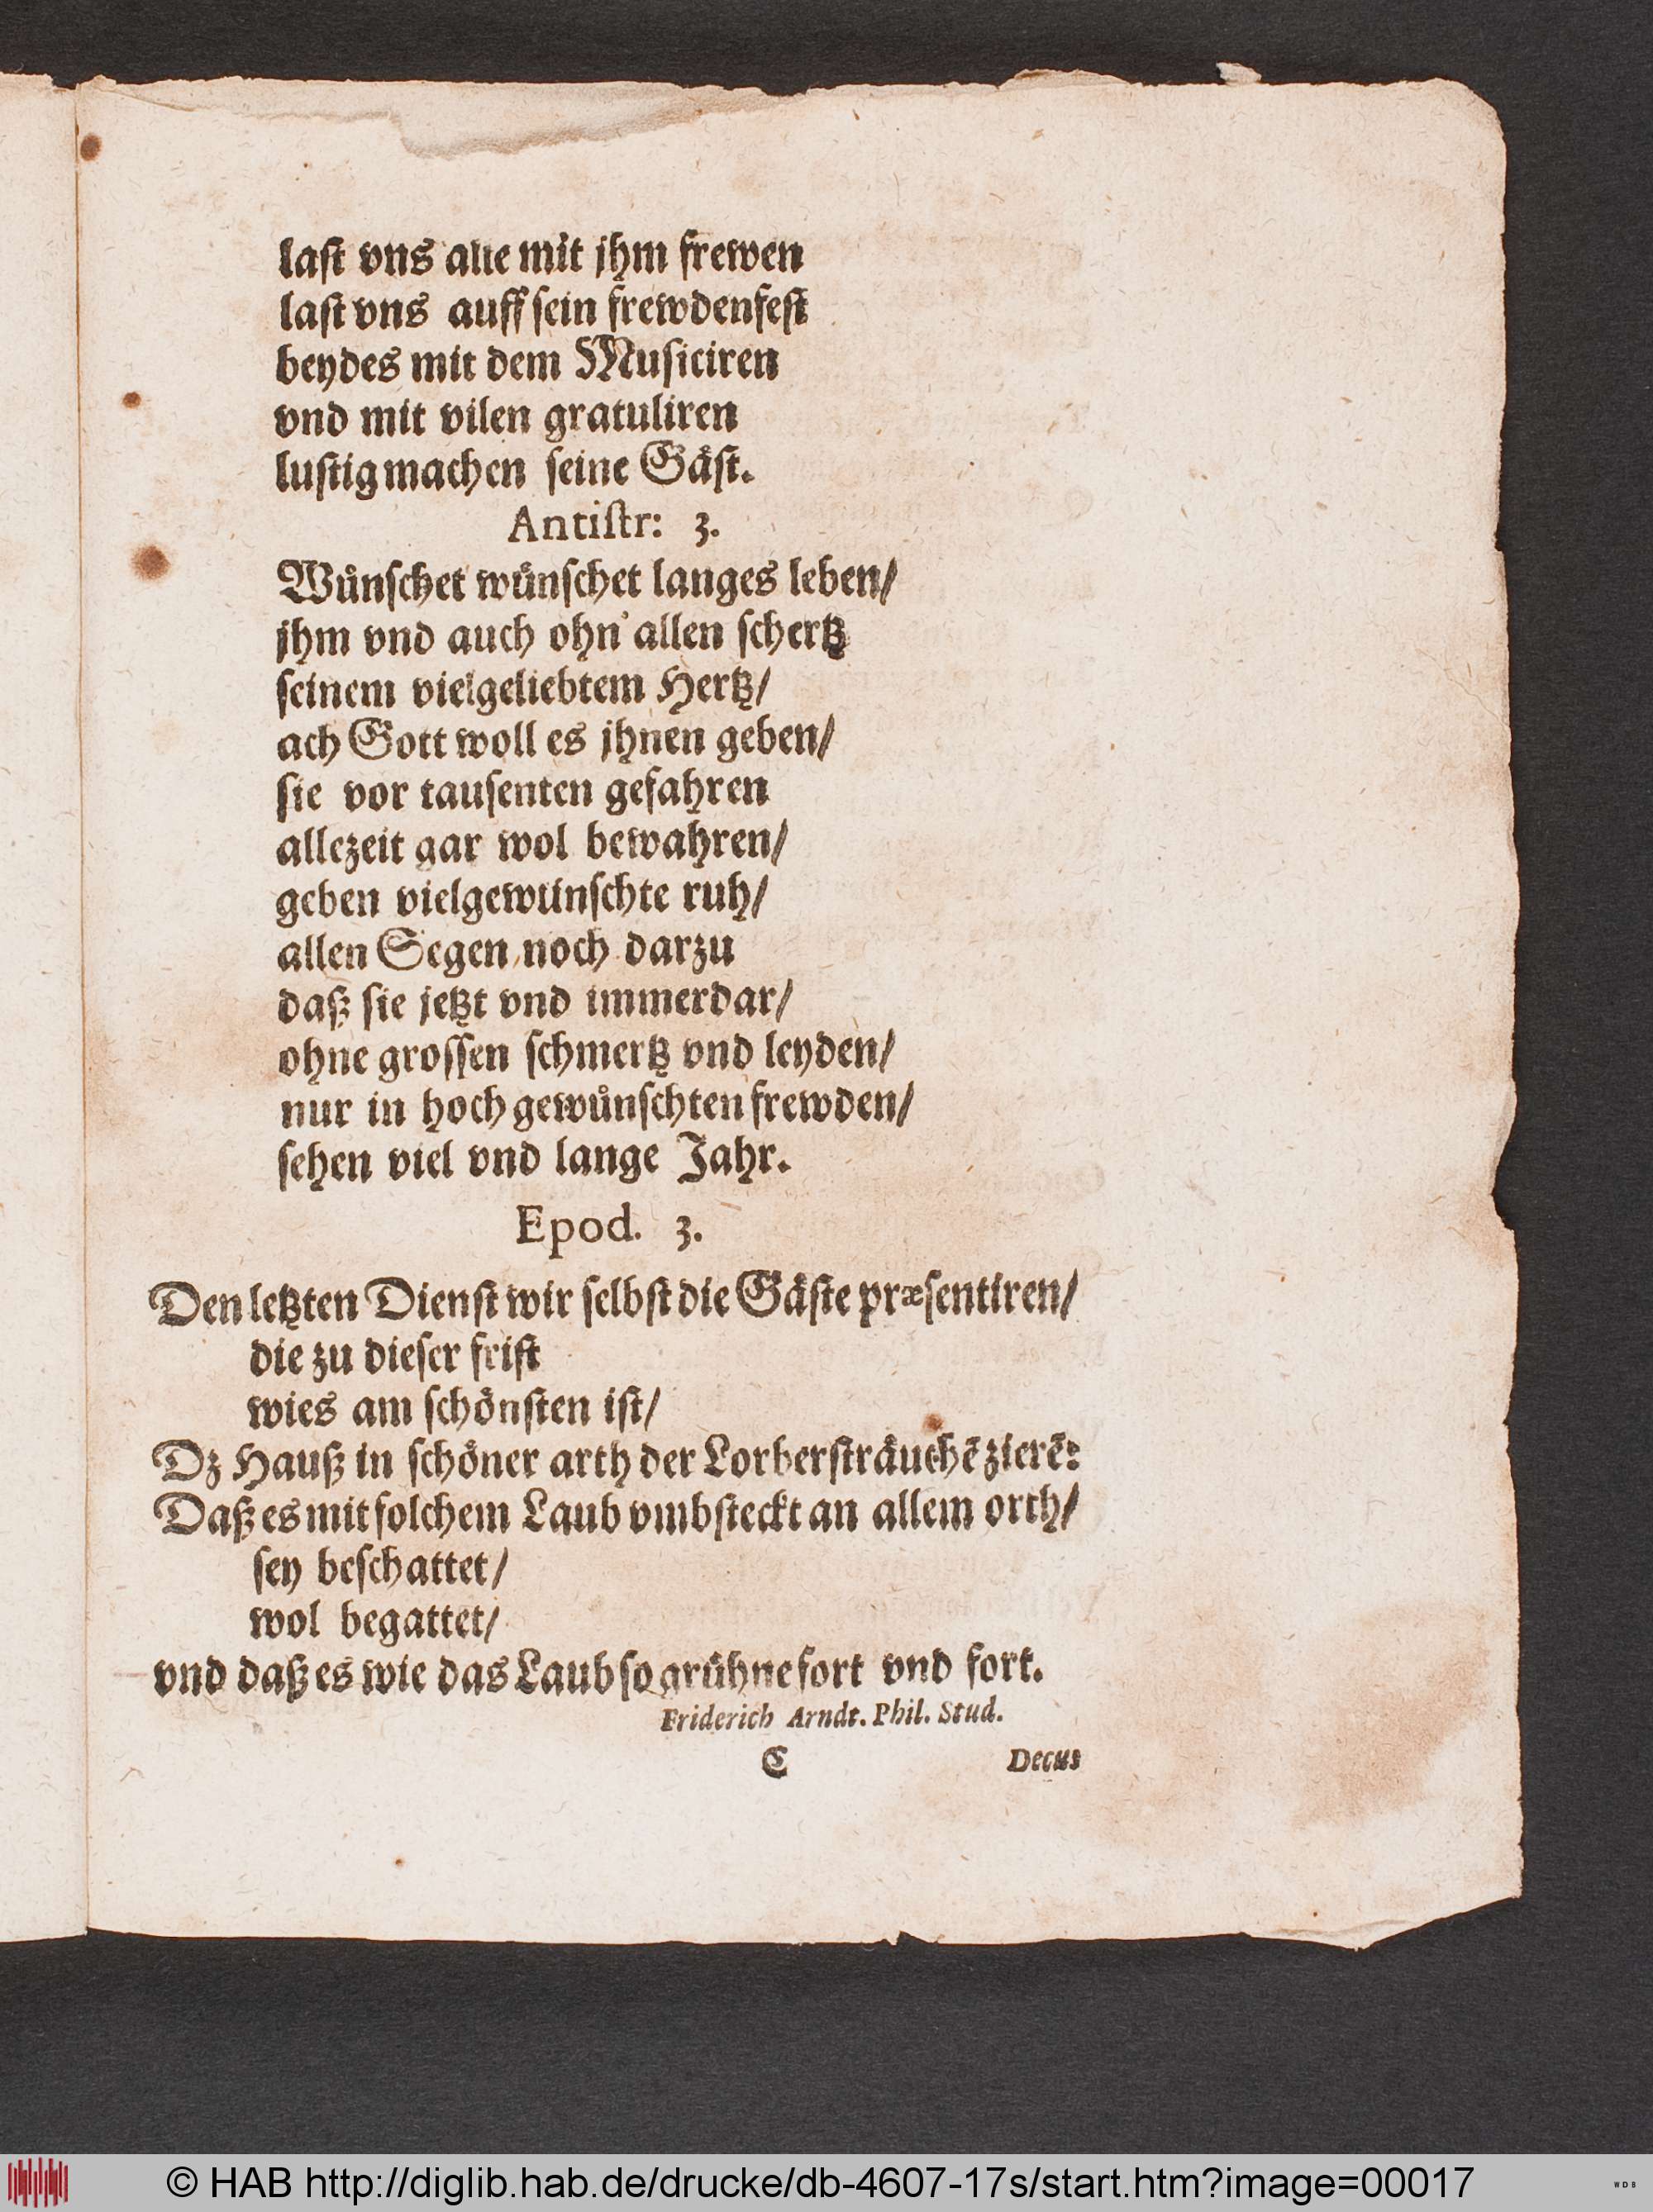 laſt vns alle mit jhm frewen
laſt vns auff ſein frewdenfeſt
beydes mit dem Muſiciren
vnd mit vilen gratuliren
luſtig machen ſeine Gäſt.
Antiſtr: 3.
Wünſchet wünſchet langes leben/
jhm vnd auch ohn' allen ſchertz
ſeinem vielgeliebtem Hertz/
ach Gott woll es jhnen geben/
ſie vor tauſenten gefahren
allezeit gar wol bewahren/
geben vielgewünſchte ruh/
allen Segen noch darzu
daß ſie jetzt vnd immerdar/
ohne groſſen ſchmertz vnd leyden/
nur in hoch gewünſchten frewden/
ſehen viel vnd lange Jahr.
Epod. 3.
Den letzten Dienſt wir ſelbſt die Gäſte præſentiren/
die zu dieſer friſt
wies am ſchönſten iſt/
Dz Hauß in ſchöner arth der Lorberſträuchē zierē:
Daß es mit ſolchem Laub vmbſteckt an allem orth/
ſey beſchattet/
wol begattet/
vnd daß es wie das Laub ſo grühne fort vnd fort.
Friderich Arndt. Phil. Stud.
C Decus
© HAB http://diglib.hab.de/drucke/db-4607-17s/start.htm?image=00017
WDB